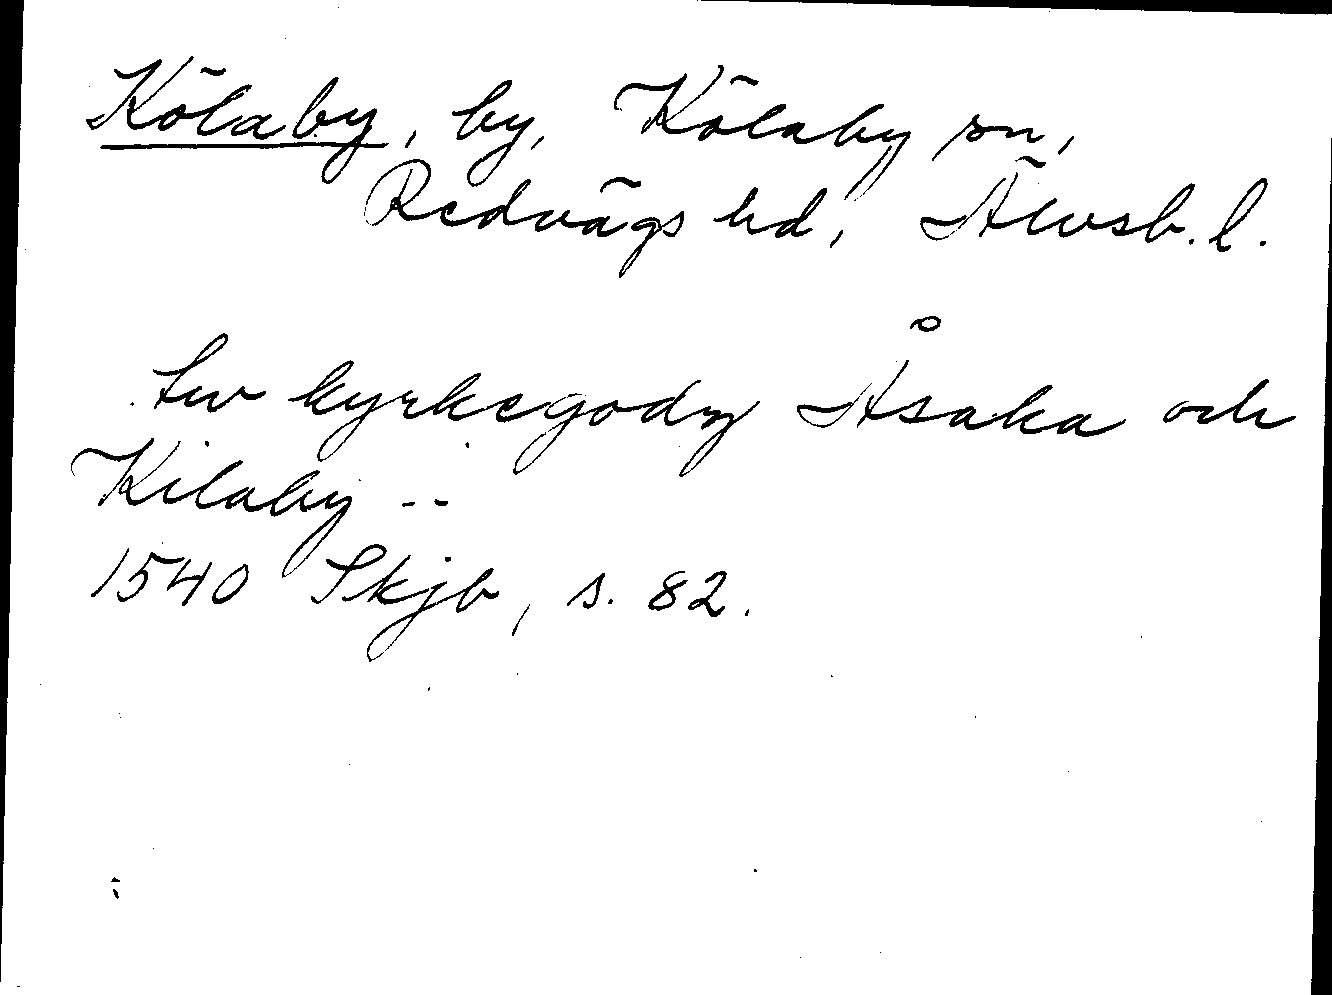 Kölaby, by, Kölaby sn,
Redvägs hd, Älvsb. l.
tw kyrkegodz Åsaka och
Kilaby --
1540 Skjb, s. 82.